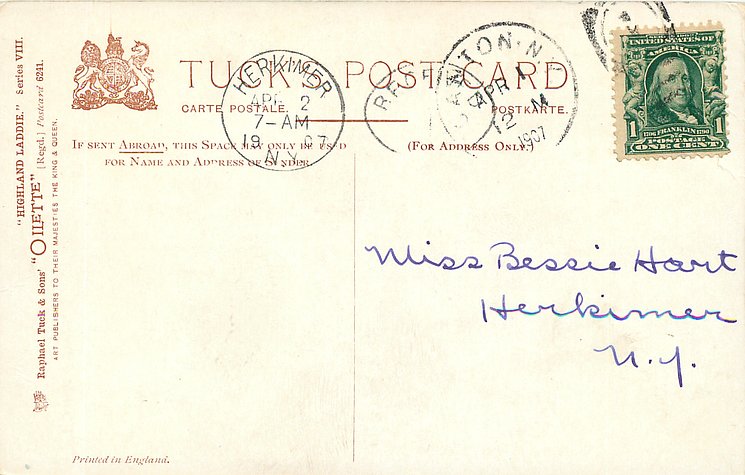 TUCK'S POST CARD
CARTE POSTALE.
POSTKARTE.
IF SENT ABROAD, THIS SPACE MAY ONLY BE USED
FOR NAME AND ADDRESS OF SENDER.
(FOR ADDRESS ONLY.)
HERKIMER
APR 2
7-AM
1907
N.Y.
REC
APR 1
2 M
1907
SERIES 1902
UNITED STATES OF
AMERICA
1706 FRANKLIN 1790
1 POSTAGE 1
ONE CENT
"HIGHLAND LADDIE." Series VIII.
Raphael Tuck & Sons' "OILETTE" [Regd.] Postcard 6241.
ART PUBLISHERS TO THEIR MAJESTIES THE KING & QUEEN.
Miss Bessie Hart
Herkimer
N.Y.
Printed in England.